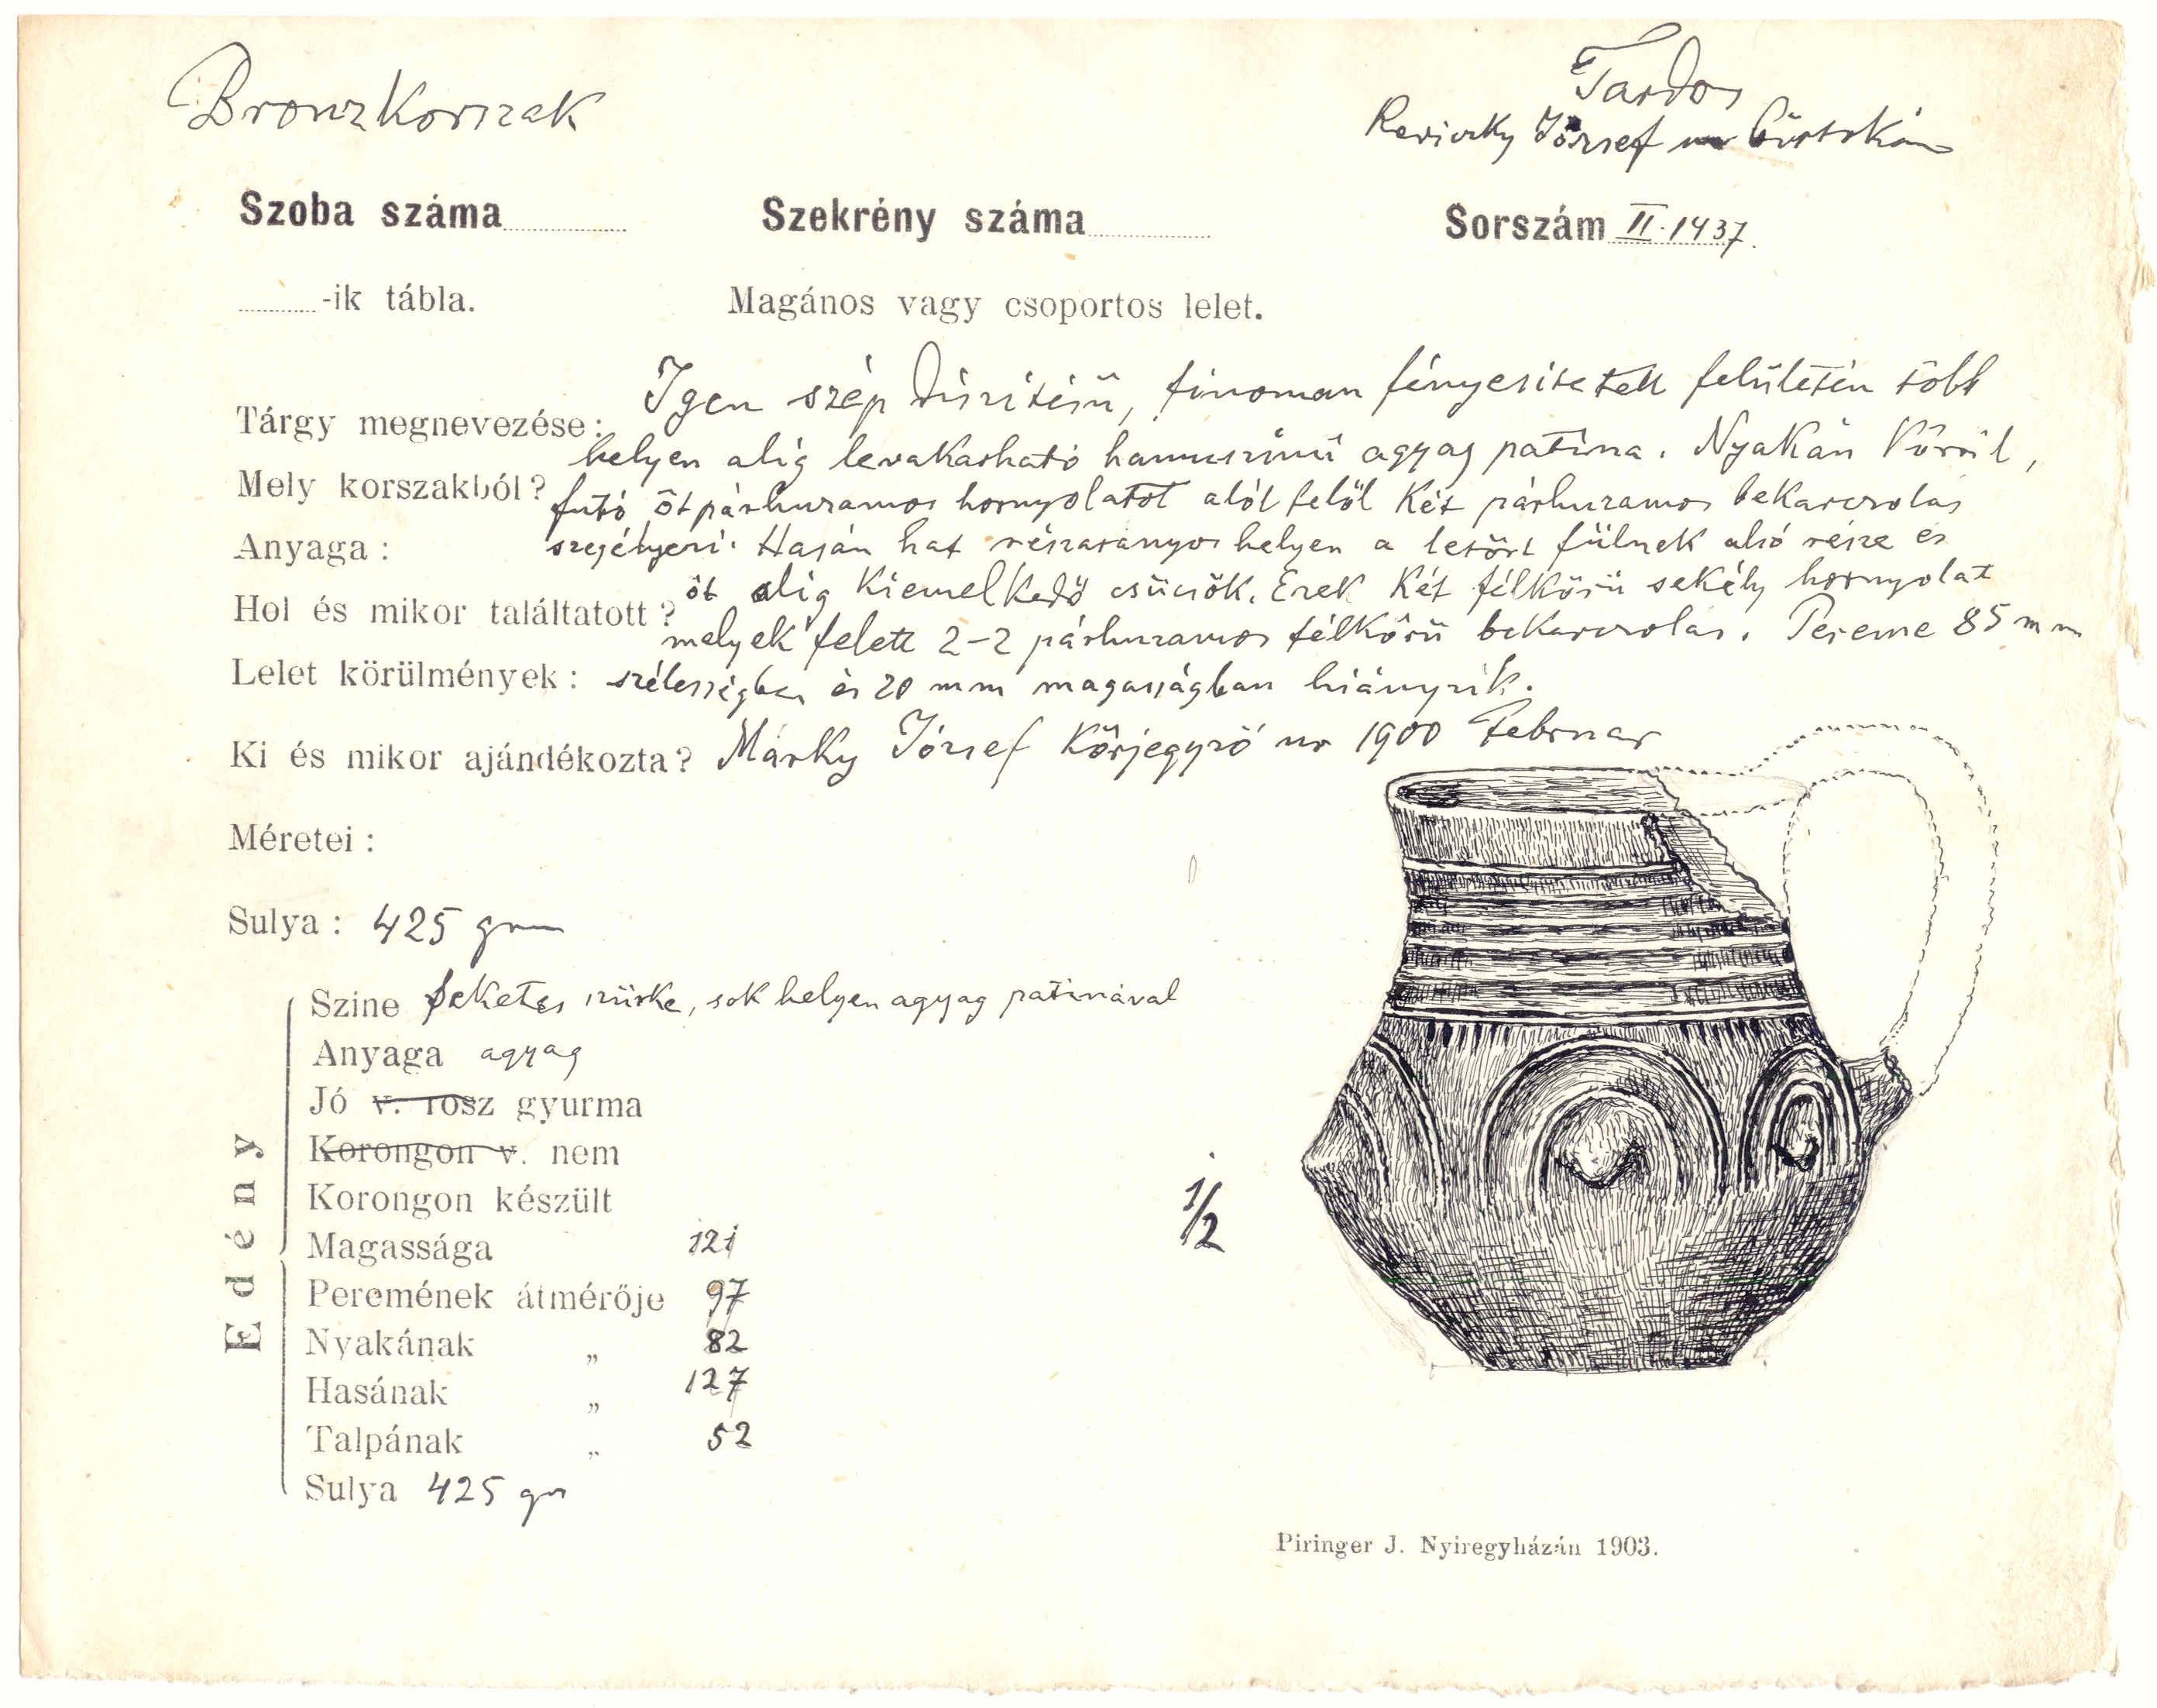 Bronzkorszak
Tardos
Reviczky József ur
Szoba száma
Szekrény száma
Sorszám II. 1437.
-ik tábla.
Magános vagy csoportos lelet.
Tárgy megnevezése: Igen szép diszitésü, finoman fényesitetett felületén több
helyen alig levakarható hamuszinü agyag patina. Nyakán körül,
Mely korszakból? futó öt párhuzamos hornyolatot alól felől két párhuzamos bekarczolás
Anyaga: szegélyezi. Hasán hat részarányos helyen a letört fülnek alsó része és
Hol és mikor találtatott? öt alig kiemelkedő csücsök. Ezek két félkörü sekély hornyolat
melyek felett 2-2 párhuzamos félkörü bekarczolás. Pereme 85 mm
Lelet körülmények: szélességben és 20 mm magasságban hiányzik.
Ki és mikor ajándékozta? Márky József körjegyző ur 1900 Februar
Méretei:
Sulya: 425 grm
Edény
Szine feketés szürke, sok helyen agyag patinával
Anyaga agyag
Jó v. rosz gyurma
Korongon v. nem
Korongon készült
Magassága 121
Peremének átmérője 97
Nyakának „ 82
Hasának „ 127
Talpának „ 52
Sulya 425 gr
1/2
Piringer J. Nyiregyházán 1903.